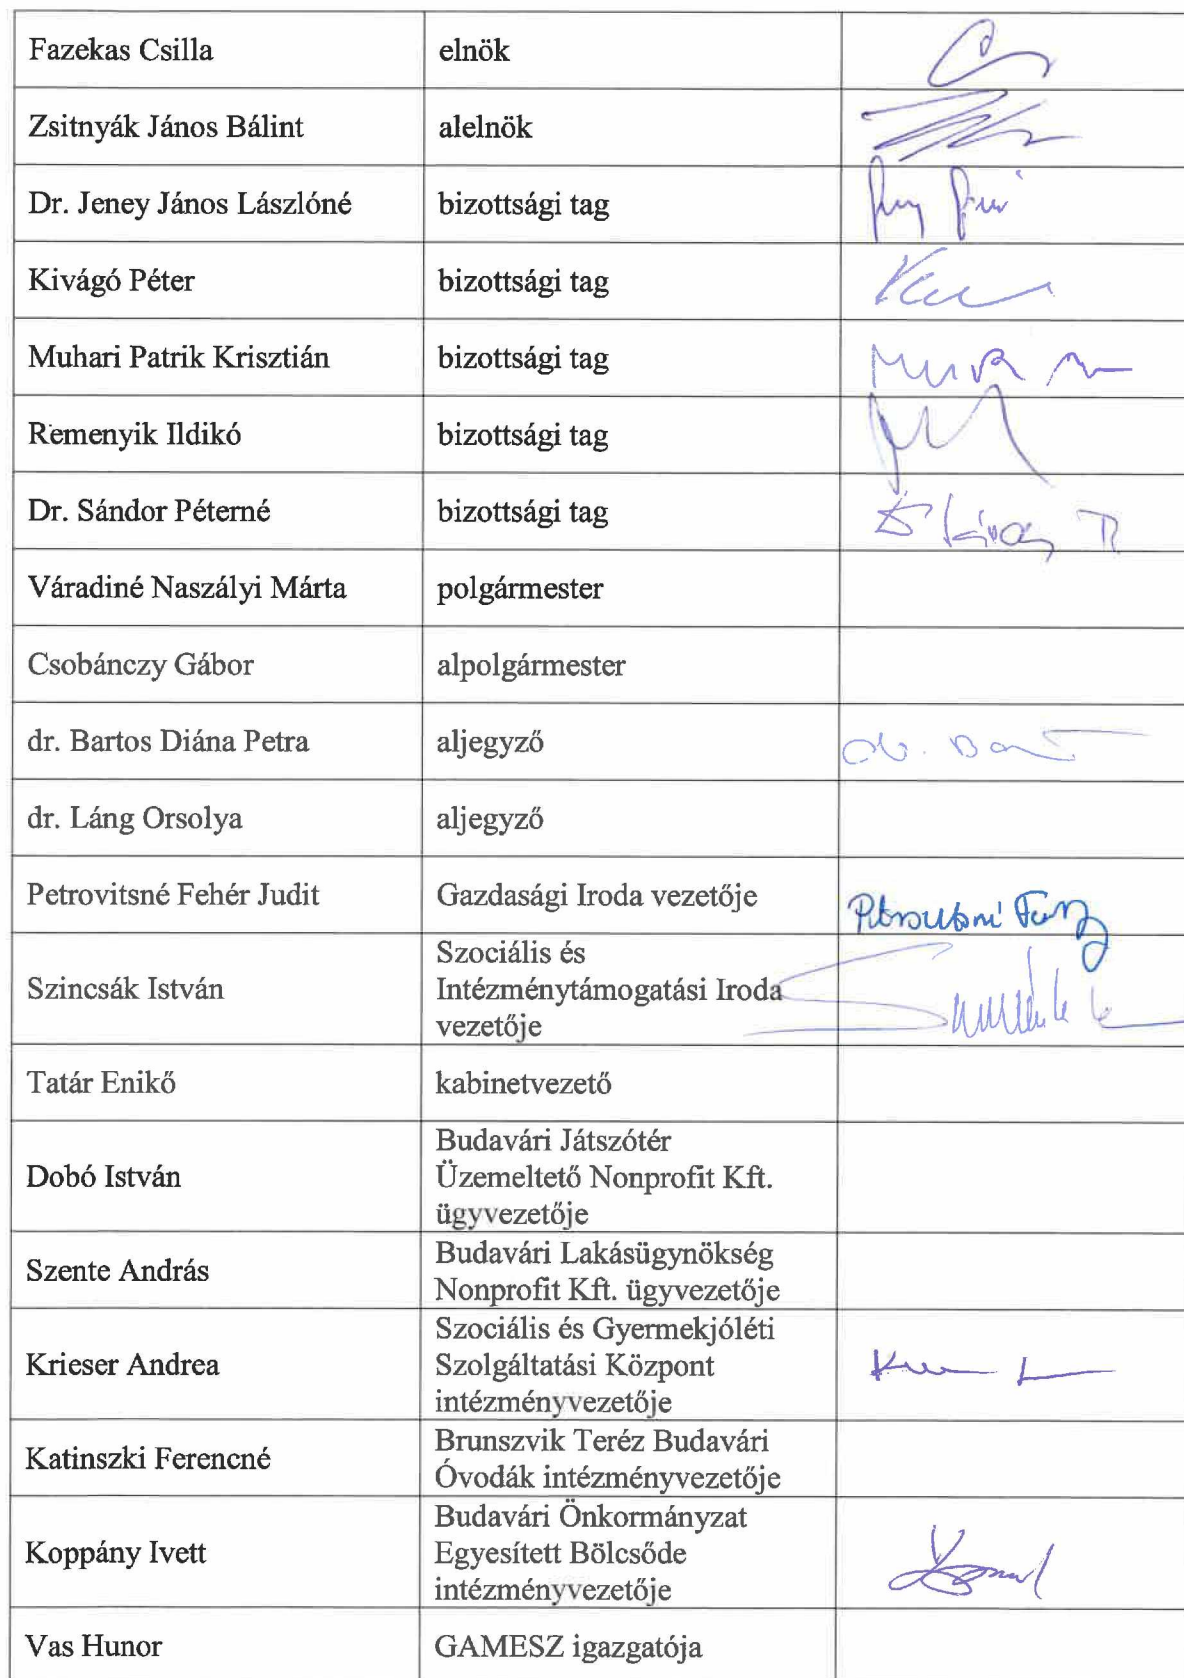 Fazekas Csilla elnök
Zsitnyák János Bálint alelnök
Dr. Jeney János Lászlóné bizottsági tag
Kivágó Péter bizottsági tag
Muhari Patrik Krisztián bizottsági tag
Remenyik Ildikó bizottsági tag
Dr. Sándor Péterné bizottsági tag
Váradiné Naszályi Márta polgármester
Csobánczy Gábor alpolgármester
dr. Bartos Diána Petra aljegyző
dr. Láng Orsolya aljegyző
Petrovitsné Fehér Judit Gazdasági Iroda vezetője
Szincsák István
Szociális és
Intézménytámogatási Iroda
vezetője
Tatár Enikő kabinetvezető
Dobó István
Budavári Játszótér
Üzemeltető Nonprofit Kft.
ügyvezetője
Szente András
Budavári Lakásügynökség
Nonprofit Kft. ügyvezetője
Krieser Andrea
Szociális és Gyermekjóléti
Szolgáltatási Központ
intézményvezetője
Katinszki Ferencné
Brunszvik Teréz Budavári
Óvodák intézményvezetője
Koppány Ivett
Budavári Önkormányzat
Egyesített Bölcsőde
intézményvezetője
Vas Hunor GAMESZ igazgatója